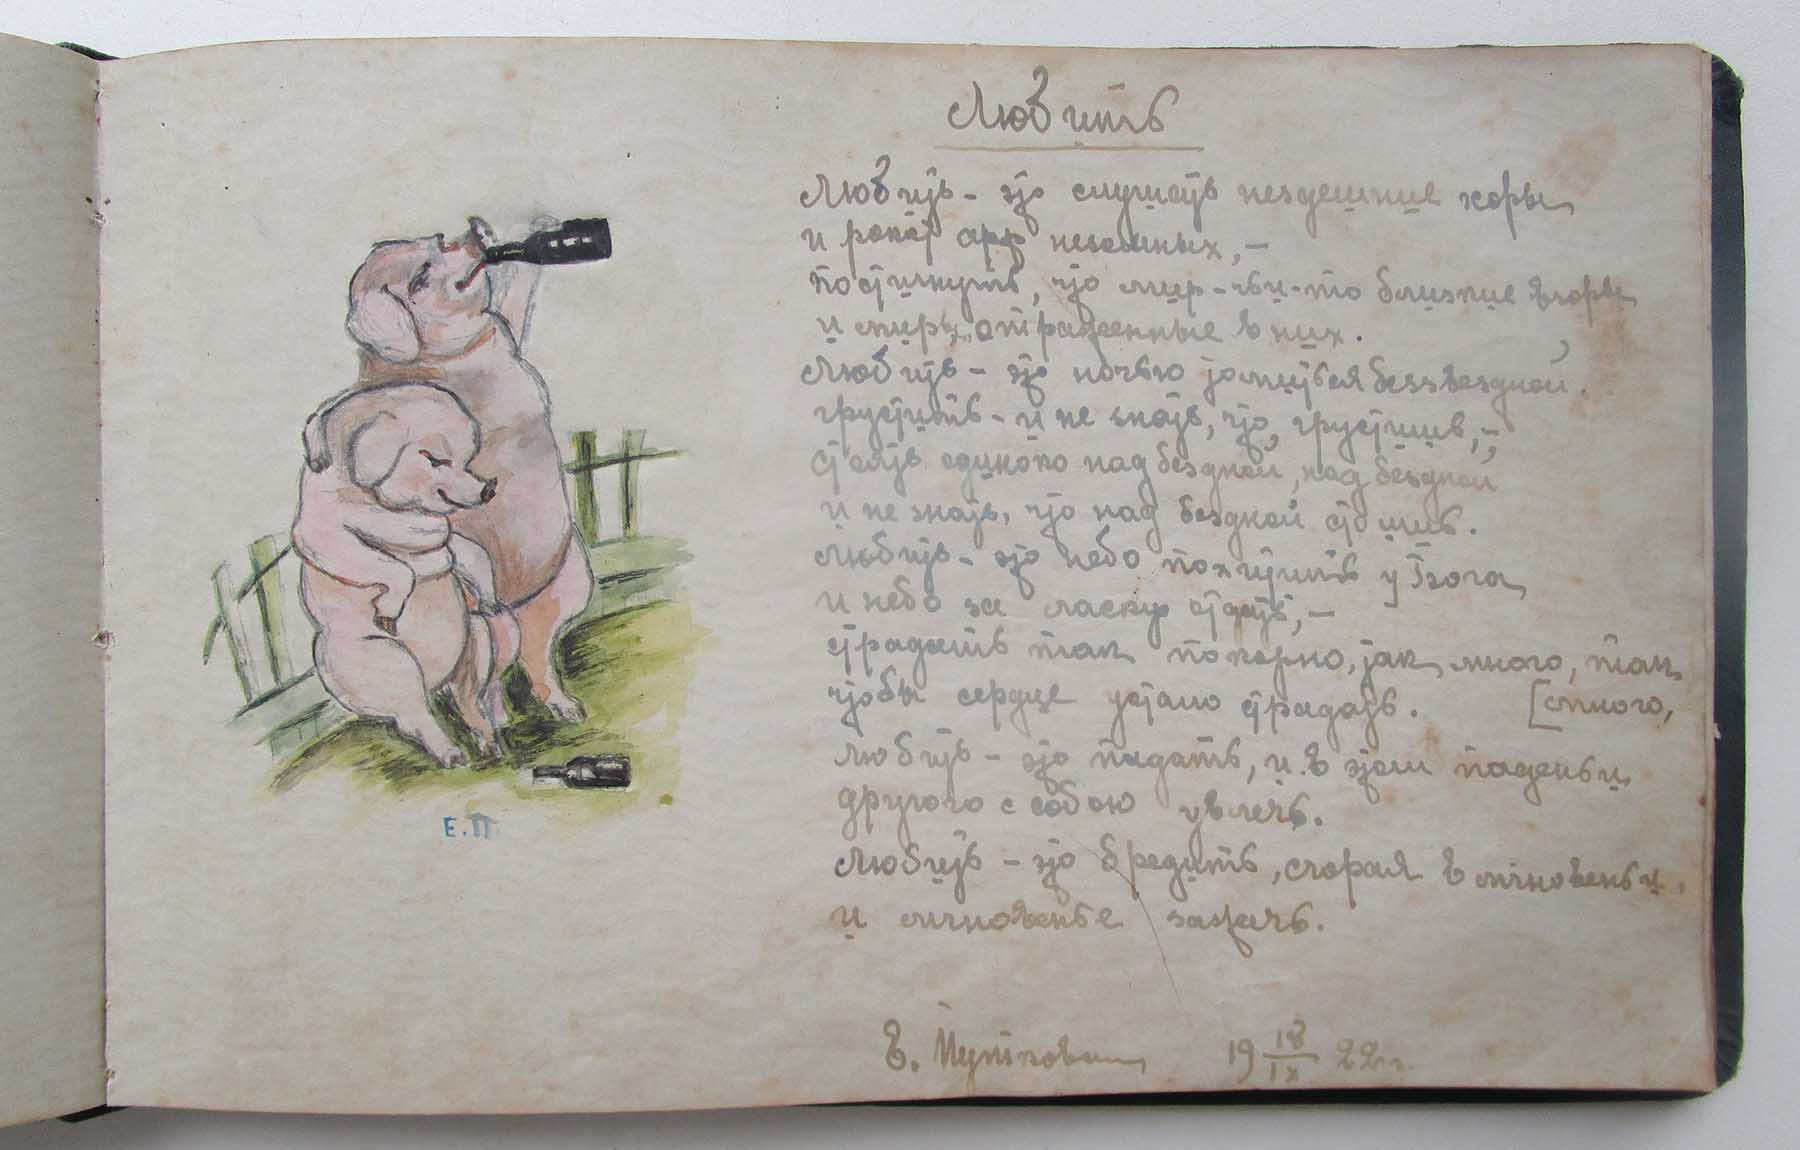 Любить
Любить - это слушать нездешние хоры
и ропот арф неземных, -
постигнуть, что мир - чьи-то близкие взоры
и миры, отраженные в них.
Любить - это ночью томиться беззвездной,
грустить - и не знать, что грустишь, -
стоять одиноко над бездной, над бездной
и не знать, что над бездной стоишь.
Любить - это небо похитить у Бога
и небо за ласку отдать, -
страдать так покорно, так много, так
чтобы сердце устало страдать. [много,
Любить - это падать, и в этом паденьи
другого с собою увлечь.
Любить - это бредить, сгорая в мгновеньи,
и мгновенье зажечь.
Е.П.
19 18/IX 22 г.